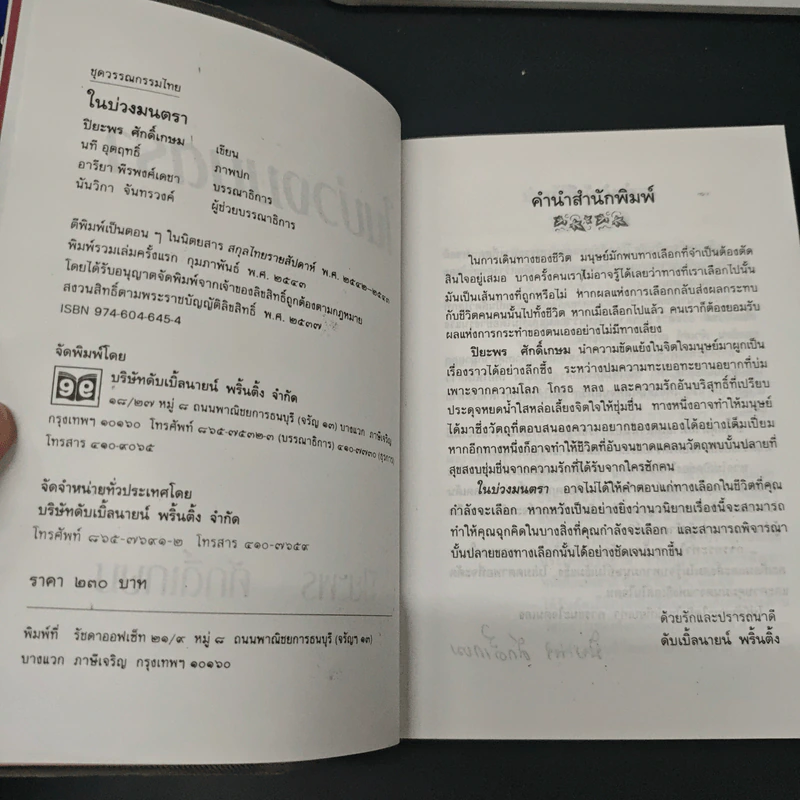 ชุดวรรณกรรมไทย
ในบ่วงมนตรา
ปิยะพร ศักดิ์เกษม เขียน
นที อุตฤทธิ์ ภาพปก
อาริยา พีรพงศ์เดชา บรรณาธิการ
นันวิกา จันทรวงศ์ ผู้ช่วยบรรณาธิการ
ตีพิมพ์เป็นตอน ๆ ในนิตยสาร สกุลไทยรายสัปดาห์ พ.ศ. ๒๕๔๒-๒๕๔๓
พิมพ์รวมเล่มครั้งแรก กุมภาพันธ์ พ.ศ. ๒๕๔๓
โดยได้รับอนุญาตจัดพิมพ์จากเจ้าของลิขสิทธิ์ถูกต้องตามกฎหมาย
สงวนสิทธิ์ตามพระราชบัญญัติลิขสิทธิ์ พ.ศ. ๒๕๓๗
ISBN 974-604-645-4
จัดพิมพ์โดย
๙๙ บริษัทดับเบิ้ลนายน์ พริ้นติ้ง จำกัด
๑๘/๒๗ หมู่ ๘ ถนนพาณิชยการธนบุรี (จรัญ ๑๓) บางแวก ภาษีเจริญ
กรุงเทพฯ ๑๐๑๖๐ โทรศัพท์ ๘๖๕-๗๕๓๒-๓ (บรรณาธิการ) ๔๑๐-๗๗๓๐ (ธุรการ)
โทรสาร ๔๑๐-๙๐๖๕
จัดจำหน่ายทั่วประเทศโดย
บริษัทดับเบิ้ลนายน์ พริ้นติ้ง จำกัด
โทรศัพท์ ๘๖๕-๗๖๙๑-๒ โทรสาร ๔๑๐-๗๖๕๙
ราคา ๒๓๐ บาท
พิมพ์ที่ รัชดาออฟเซ็ท ๒๑/๙ หมู่ ๘ ถนนพาณิชยการธนบุรี (จรัญฯ ๑๓)
บางแวก ภาษีเจริญ กรุงเทพฯ ๑๐๑๖๐
คำนำสำนักพิมพ์
ในการเดินทางของชีวิต มนุษย์มักพบทางเลือกที่จำเป็นต้องตัด
สินใจอยู่เสมอ บางครั้งคนเราไม่อาจรู้ได้เลยว่าทางที่เราเลือกไปนั้น
มันเป็นเส้นทางที่ถูกหรือไม่ หากผลแห่งการเลือกกลับส่งผลกระทบ
กับชีวิตคนคนนั้นไปทั้งชีวิต หากเมื่อเลือกไปแล้ว คนเราก็ต้องยอมรับ
ผลแห่งการกระทำของตนเองอย่างไม่มีทางเลี่ยง
ปิยะพร ศักดิ์เกษม นำความขัดแย้งในจิตใจมนุษย์มาผูกเป็น
เรื่องราวได้อย่างลึกซึ้ง ระหว่างปมความทะเยอทะยานอยากที่บ่ม
เพาะจากความโลภ โกรธ หลง และความรักอันบริสุทธิ์ที่เปรียบ
ประดุจหยดน้ำใสหล่อเลี้ยงจิตใจให้ชุ่มชื่น ทางหนึ่งอาจทำให้มนุษย์
ได้มาซึ่งวัตถุที่ตอบสนองความอยากของตนเองได้อย่างเต็มเปี่ยม
หากอีกทางหนึ่งก็อาจทำให้ชีวิตที่อับจนขาดแคลนวัตถุพบบั้นปลายที่
สุขสงบชุ่มชื่นจากความรักที่ได้รับจากใครซักคน
ในบ่วงมนตรา อาจไม่ได้ให้คำตอบแก่ทางเลือกในชีวิตที่คุณ
กำลังจะเลือก หากหวังเป็นอย่างยิ่งว่านวนิยายเรื่องนี้จะสามารถ
ทำให้คุณฉุกคิดในบางสิ่งที่คุณกำลังจะเลือก และสามารถพิจารณา
บั้นปลายของทางเลือกนั้นได้อย่างชัดเจนมากขึ้น
ด้วยรักและปรารถนาดี
ดับเบิ้ลนายน์ พริ้นติ้ง